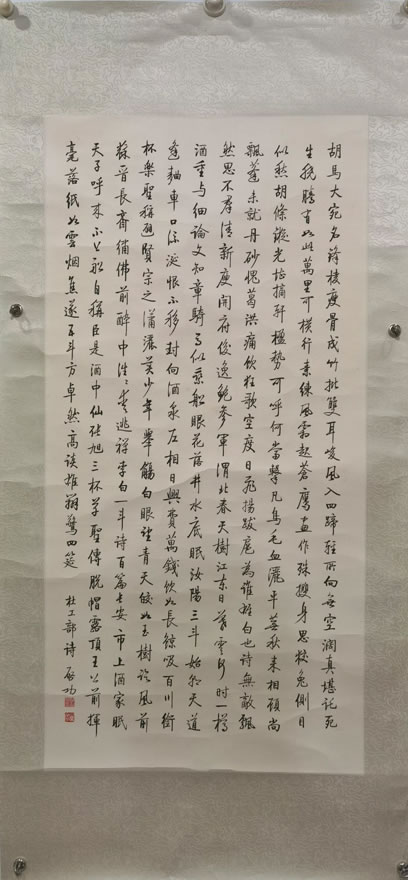 胡馬大宛名鋒稜瘦骨成竹批雙耳峻風入四蹄輕所向無空闊真堪託死
生驍騰有如此萬里可橫行素練風霜起蒼鷹畫作殊㩳身思狡兔側目
似愁胡絛鏇光堪摘軒楹勢可呼何當擊凡鳥毛血灑平蕪秋來相顧尚
飄蓬未就丹砂愧葛洪痛飲狂歌空度日飛揚跋扈為誰雄白也詩無敵飄
然思不羣清新庾開府俊逸鮑參軍渭北春天樹江東日暮雲何時一樽
酒重与細論文知章騎馬似乘船眼花落井水底眠汝陽三斗始朝天道
逢麴車口流涎恨不移封向酒泉左相日興費萬錢飲如長鯨吸百川銜
杯樂聖稱避賢宗之瀟灑美少年舉觴白眼望青天皎如玉樹臨風前
蘇晉長齋繡佛前醉中往〻愛逃禪李白一斗詩百篇長安市上酒家眠
天子呼來不上船自稱臣是酒中仙張旭三杯草聖傳脫帽露頂王公前揮
毫落紙如雲烟焦遂五斗方卓然高談雄辯驚四筵 杜工部詩 啟功